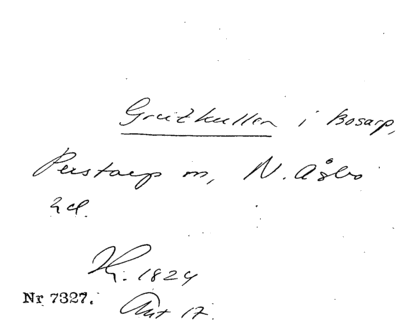 Greitkullen i Bosarp,
Perstorp sn, N. Åsbo
hd.
Kr. 1824
Nr 7327. Ant 17.